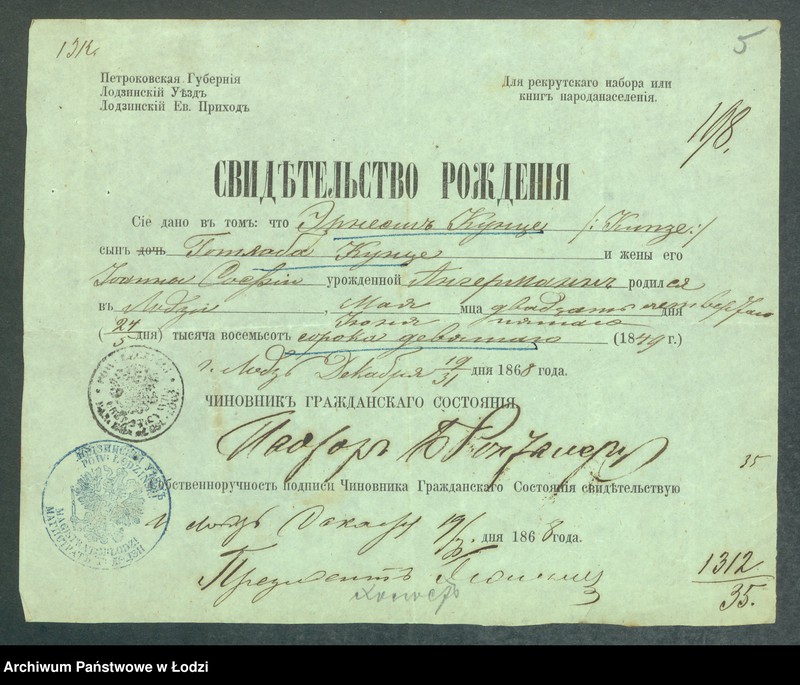 131к.
5
Петроковская Губернія
Лодзинскій Уѣздъ
Лодзинскій Ев. Приходъ
Для рекрутскаго набора или
книгъ народанаселенія.
198.
СВИДѢТЕЛЬСТВО РОЖДЕНІЯ
Сіе дано въ томъ: что Эрнестъ Кунце /: Kunze :/
сынъ дочь Готлиба Кунце и жены его
Іоанна Софіи урожденной Ангерманнъ родился
въ Лодзи, Мая мца двадцать четвертаго дня
Іюня пятаго
(24/5 дня) тысяча восемьсотъ сорокъ девятаго (1849 г.)
г. Лодзь Декабря 19/31 дня 1868 года.
ЧИНОВНИКЪ ГРАЖДАНСКАГО СОСТОЯНІЯ
Пасторъ
35
Собственноручность подписи Чиновника Гражданскаго Состоянія свидѣтельствую
Лодзь Декабря 19/31 дня 1868 года.
Президентъ
1312
35.
ЛОДЗИНСКІЙ УѢЗДЪ
POW. ŁODZIŃSKI
MAGISTRAT M. ŁODZI
Archiwum Państwowe w Łodzi